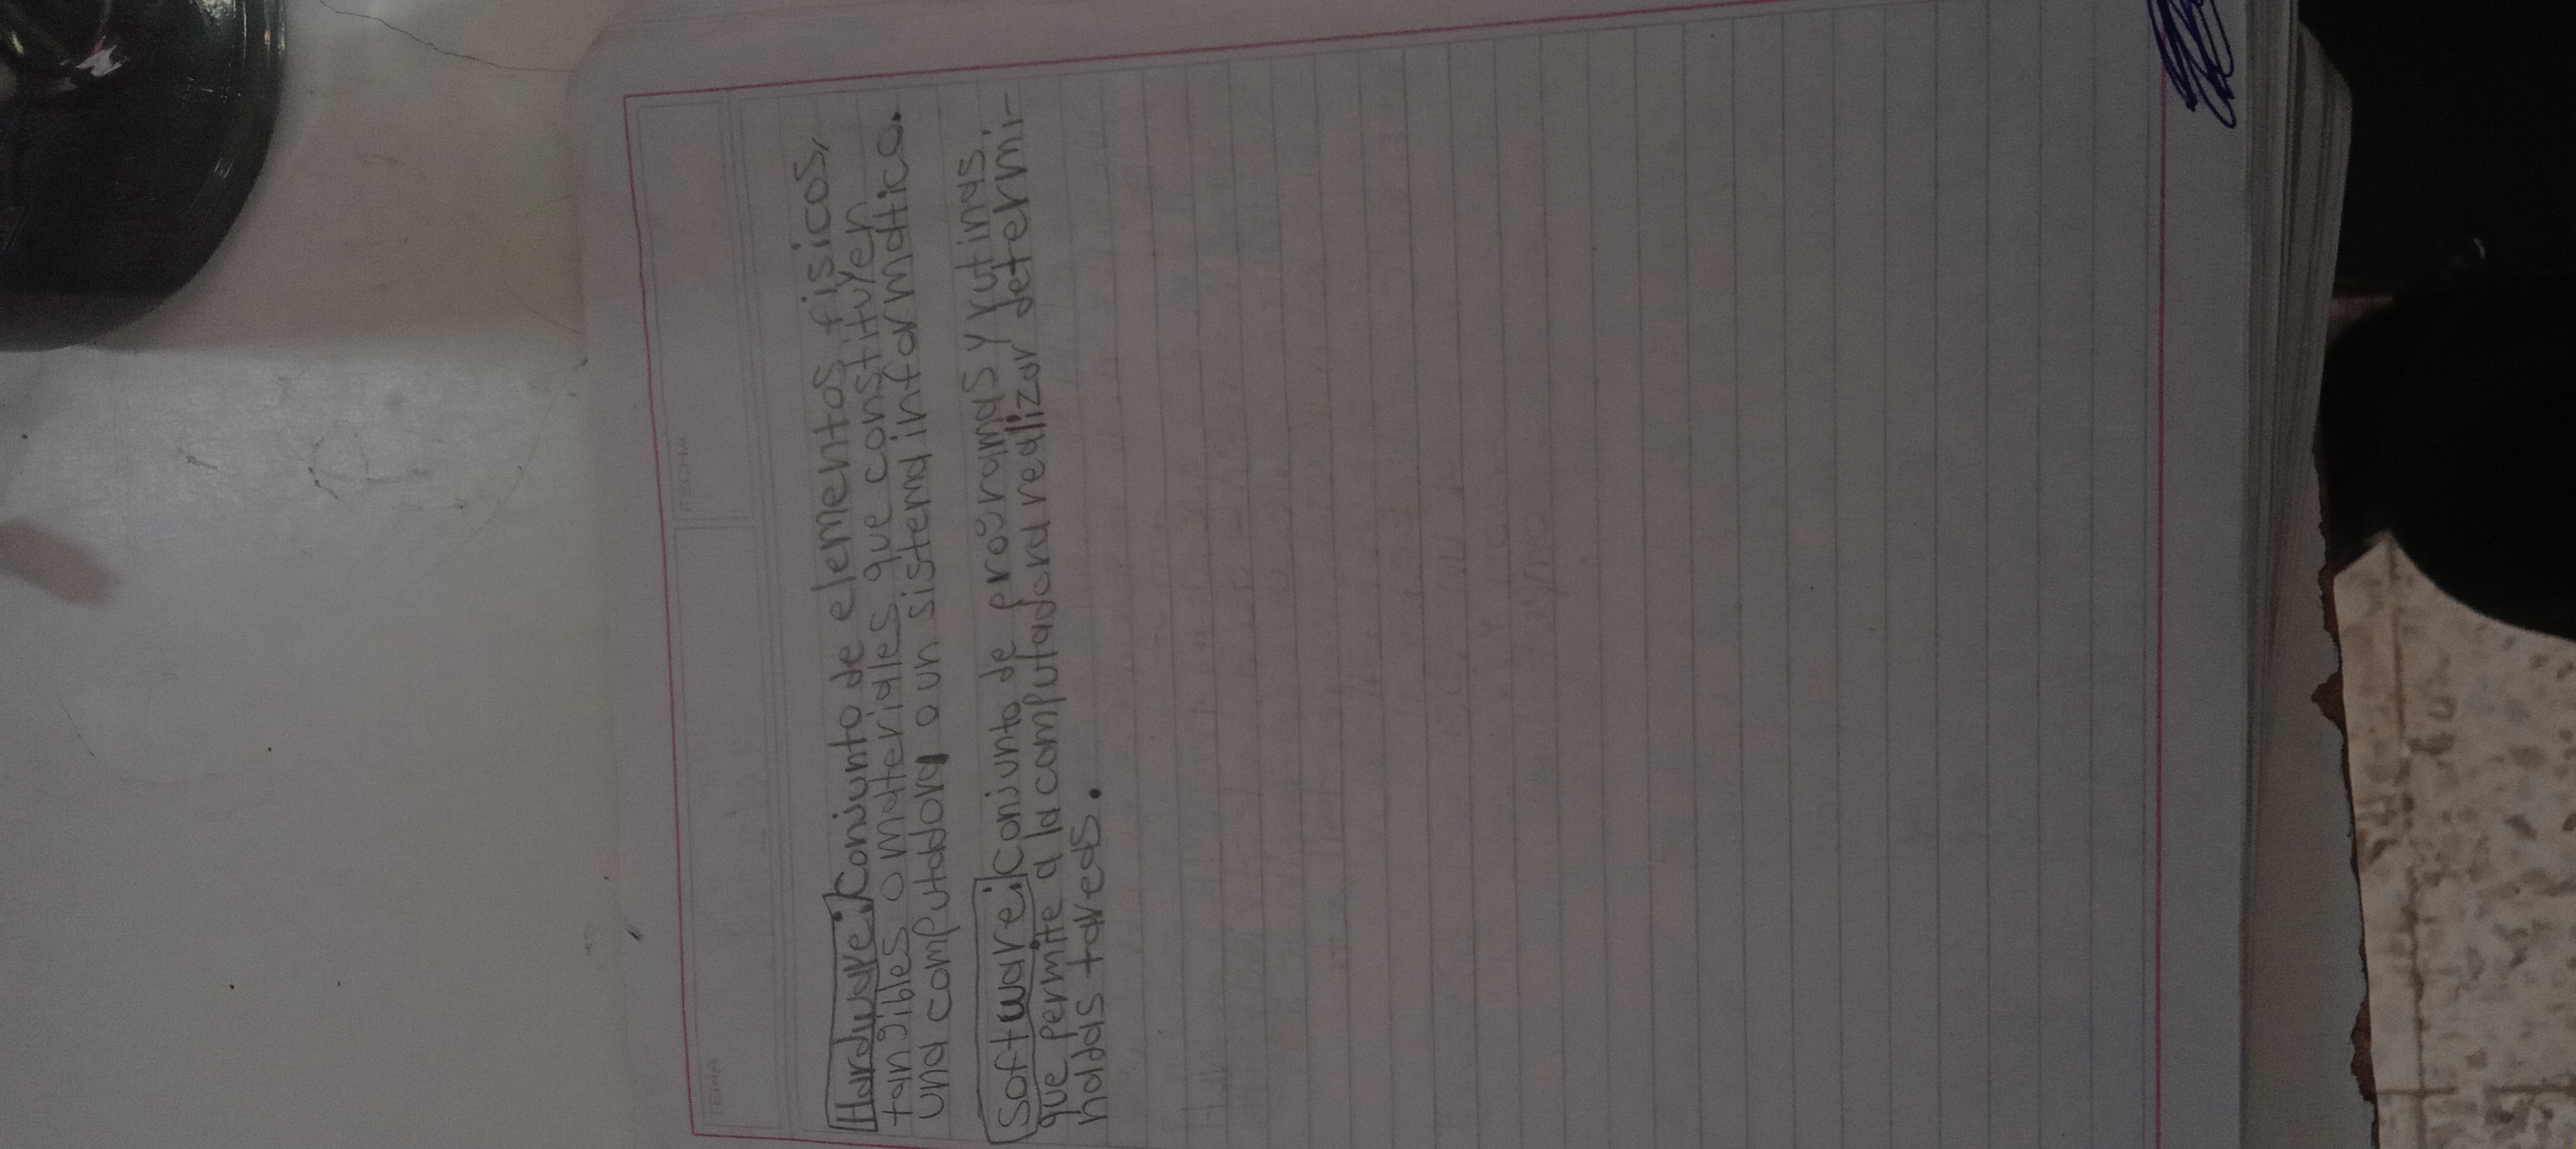 TEMA FECHA
Hardware: Conjunto de elementos fisicos,
tangibles o materiales que constituyen
una computadora o un sistema informatico.
Software: Conjunto de programas y rutinas
que permite a la computadora realizar determi-
nadas tareas.